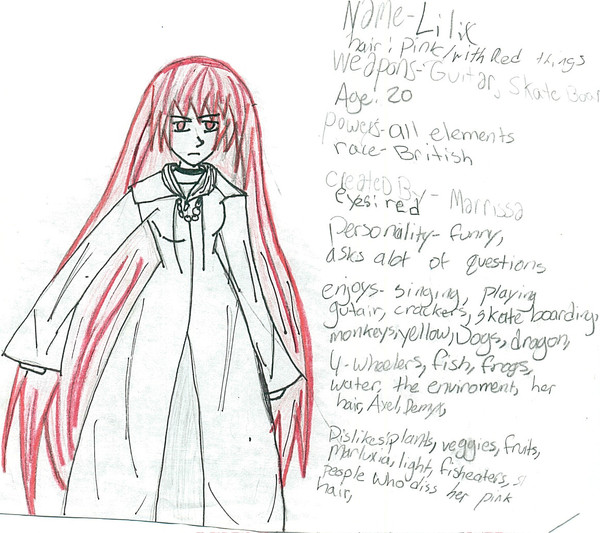 Name-Lilix
hair: pink/with Red things
Weapons-Guitar, Skate Boar
Age: 20
powers-all elements
race-British
created By- Marrissa
eyes: red
Personality- funny,
asks alot of questions
enjoys- singing, playing
gutair, crackers, skate boarding,
monkeys, yellow, Dogs, dragon,
4-wheelers, fish, frogs,
water, the enviroment, her
hair, Axel, Demyx,
Dislikes: plants, veggies, fruits,
marluxia, light, fisheaters,
people who diss her pink
hair,